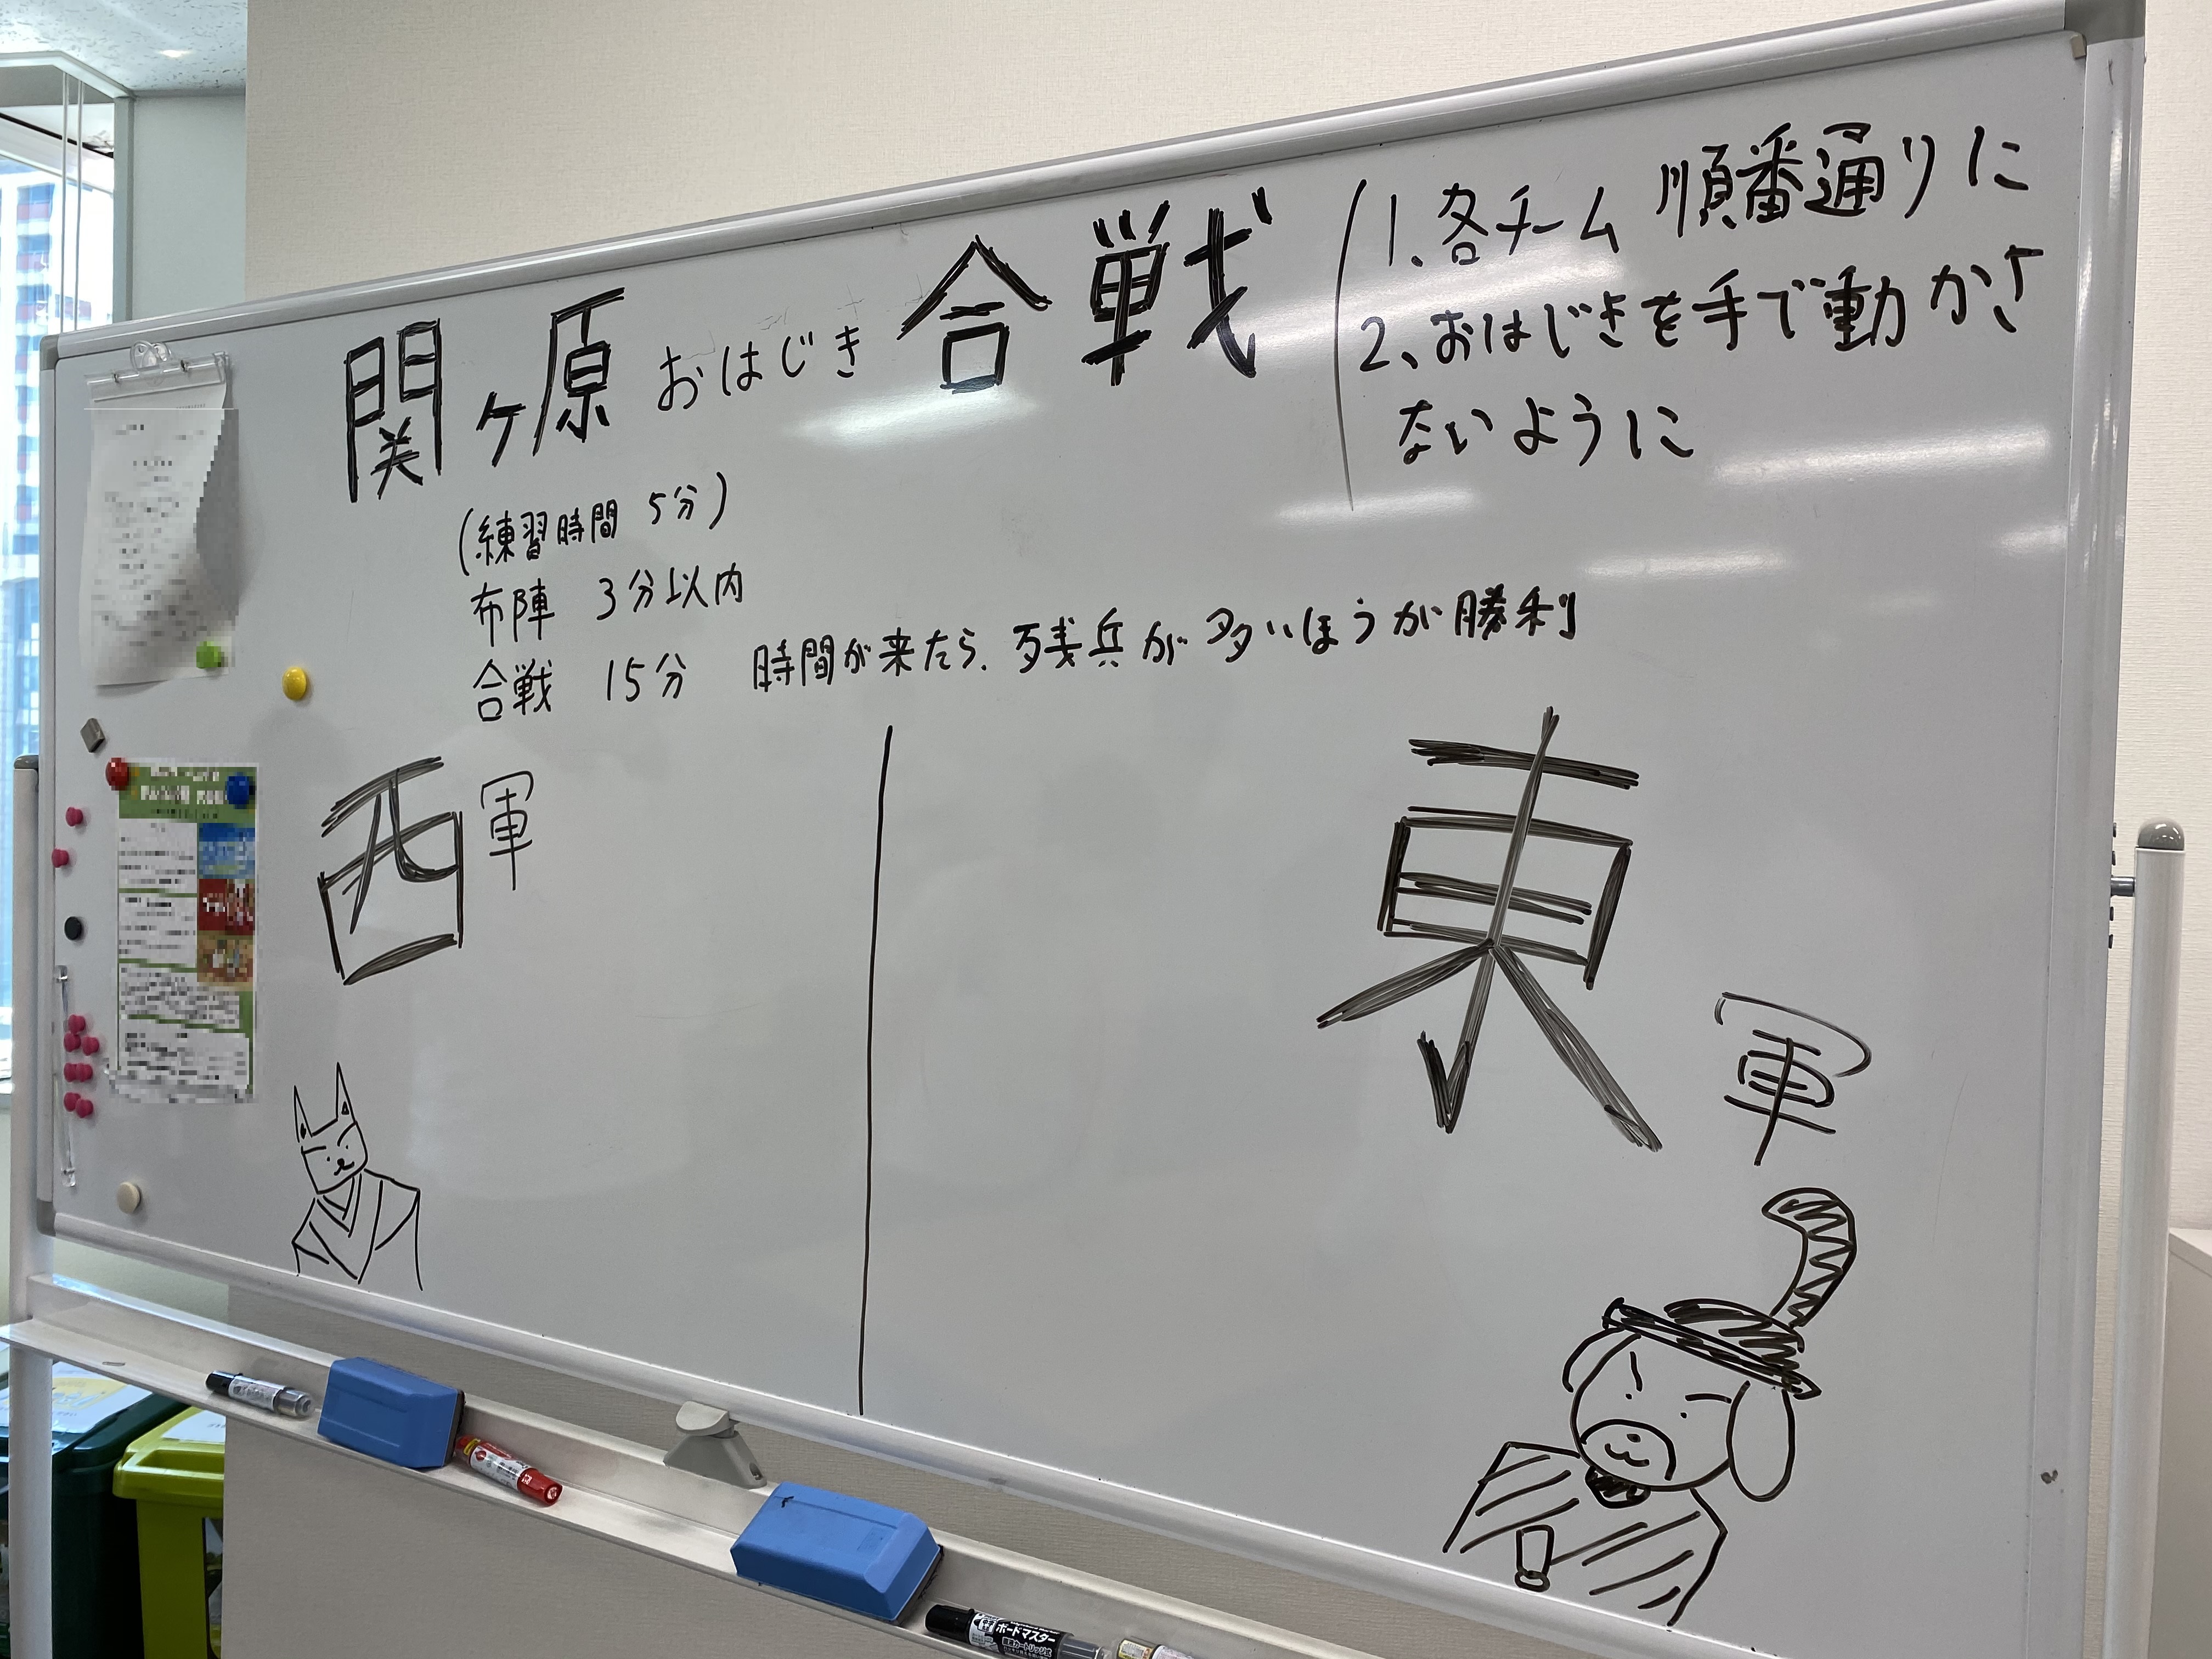 関ヶ原おはじき合戦
1、各チーム 順番通りに
2、おはじきを手で動かさ
ないように
(練習時間 5分)
布陣 3分以内
合戦 15分 時間が来たら、残兵が多いほうが勝利
西軍
東軍
ボードマスター